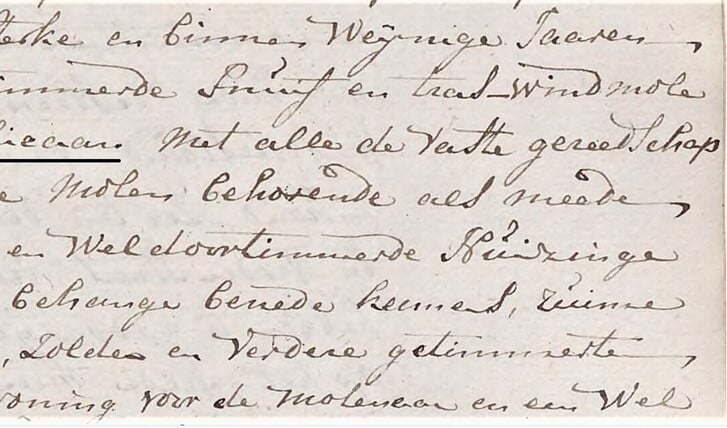 terke en binnen Weynige Jaaren
immerde Snuif en tras-windmole
licaan met alle de vaste gereedschap
e Molen behorende als meede
en Weldoortimmerde Huizinge
behange benede kamers, ruime
, Zolder en verdere getimmerte
woning voor de Molenaar en een Wel